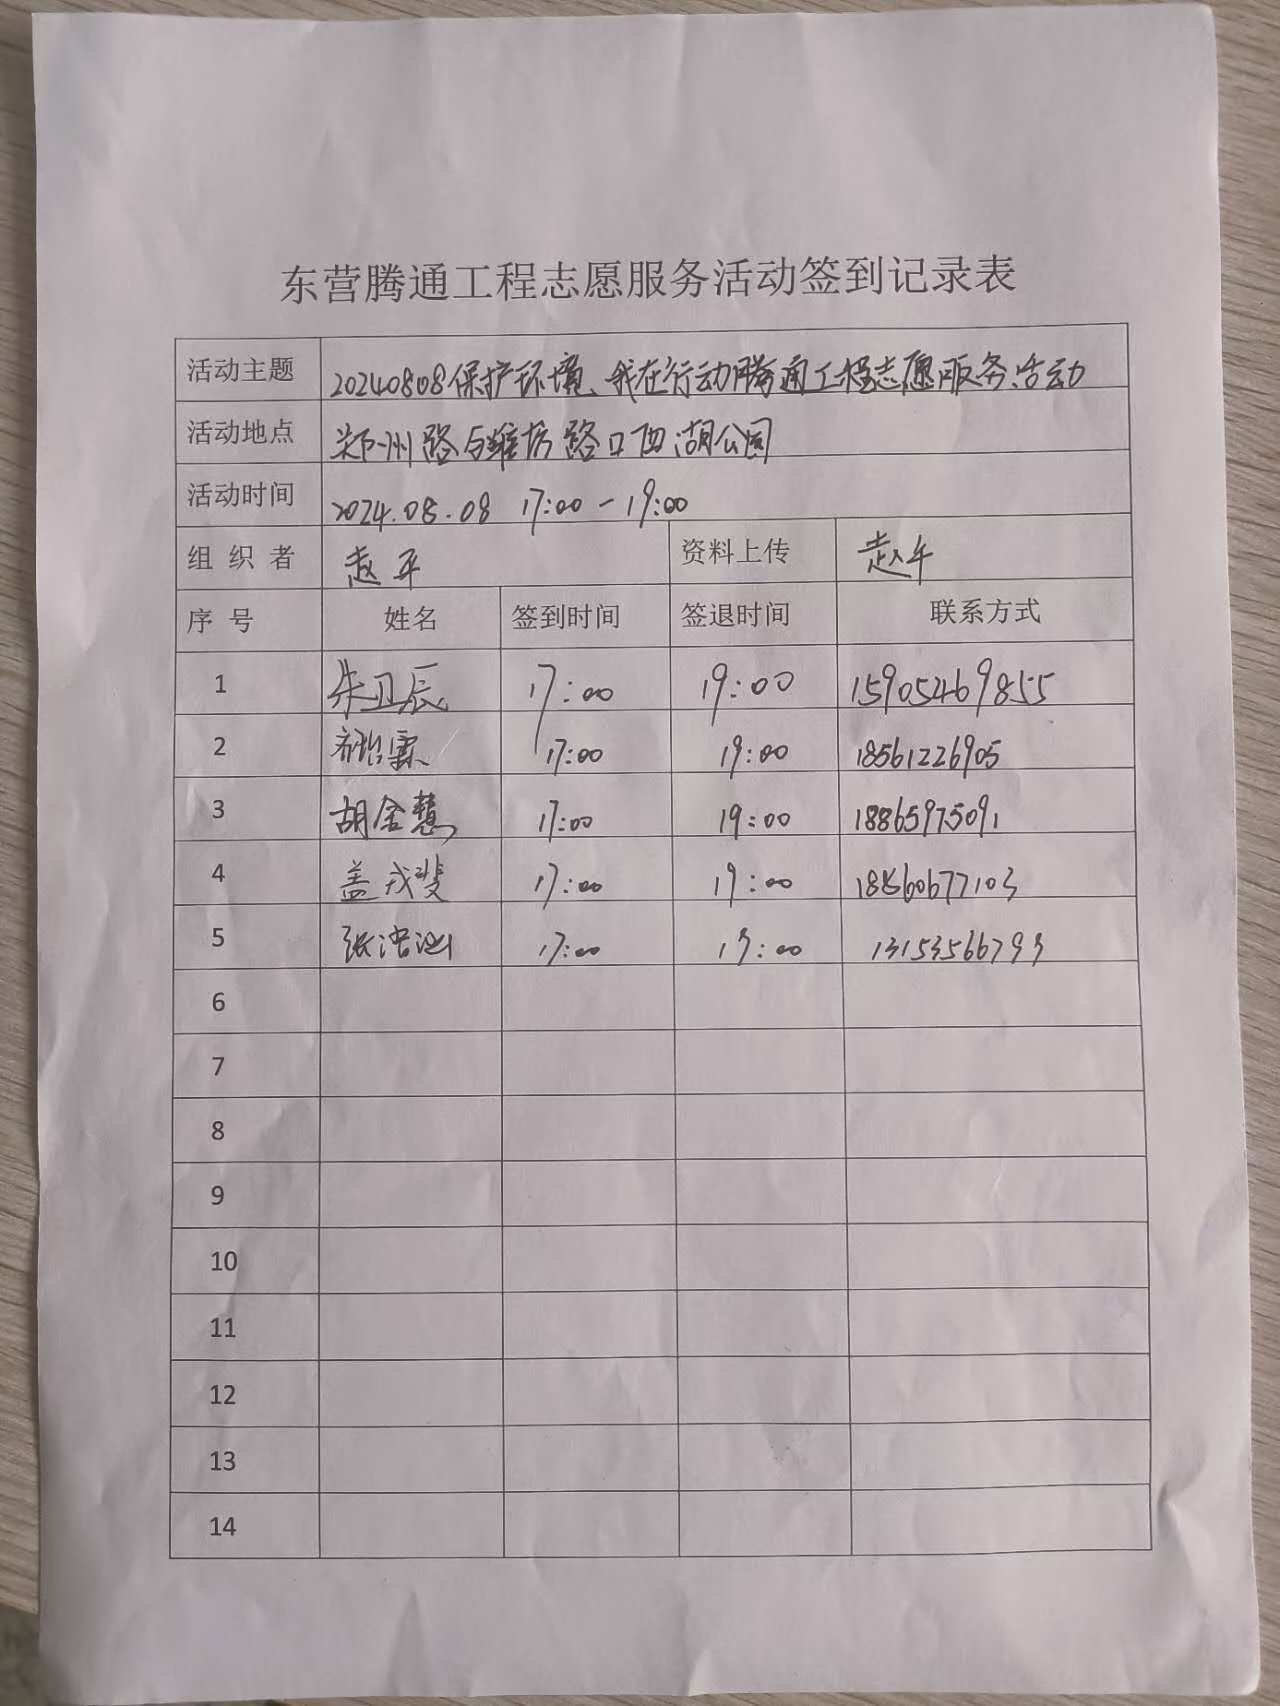 东营腾通工程志愿服务活动签到记录表
活动主题 20240808保护环境、我在行动腾通工程志愿服务活动
活动地点 郑州路与潍坊路口西湖公园
活动时间 2024.08.08 17:00-19:00
组织者 赵平 资料上传 赵平
序号 姓名 签到时间 签退时间 联系方式
1 朱卫辰 17:00 19:00 15905469855
2 17:00 19:00 18561226905
3 胡金慧 17:00 19:00 18865975091
4 盖戎斐 17:00 19:00 18560677103
5 张浩 17:00 19:00
6
7
8
9
10
11
12
13
14